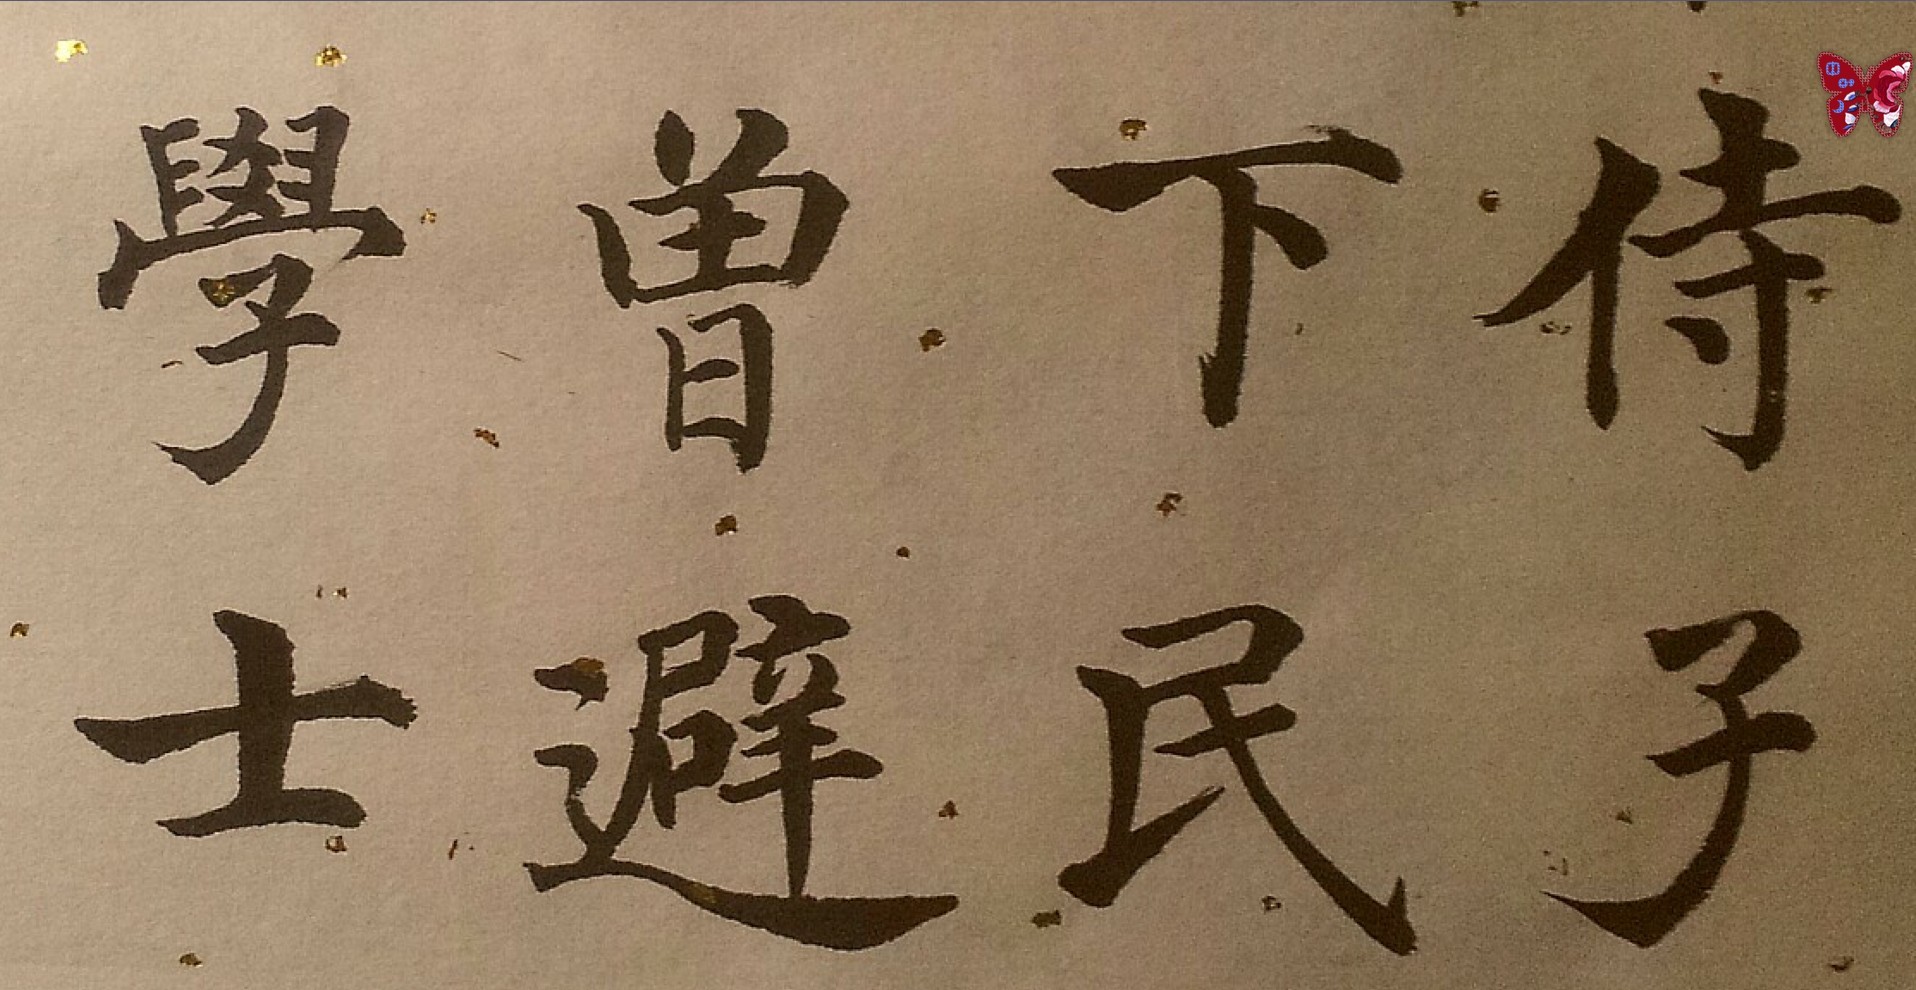 侍子
下民
曾避
學士